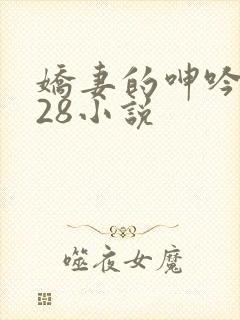 嬌妻的呻吟
28小說
噬夜女魔